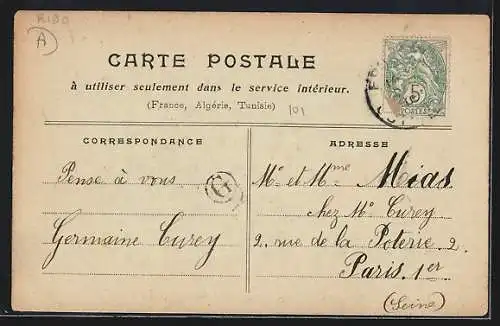 RIBO
A
CARTE POSTALE
à utiliser seulement dans le service intérieur.
(France, Algérie, Tunisie)
101
5
POSTES
CORRESPONDANCE
Pense à vous
G
Germaine Curey
ADRESSE
Mr et Mme Mias
chez Mr Curey
2. rue de la Poterie. 2.
Paris. 1er
(Seine)